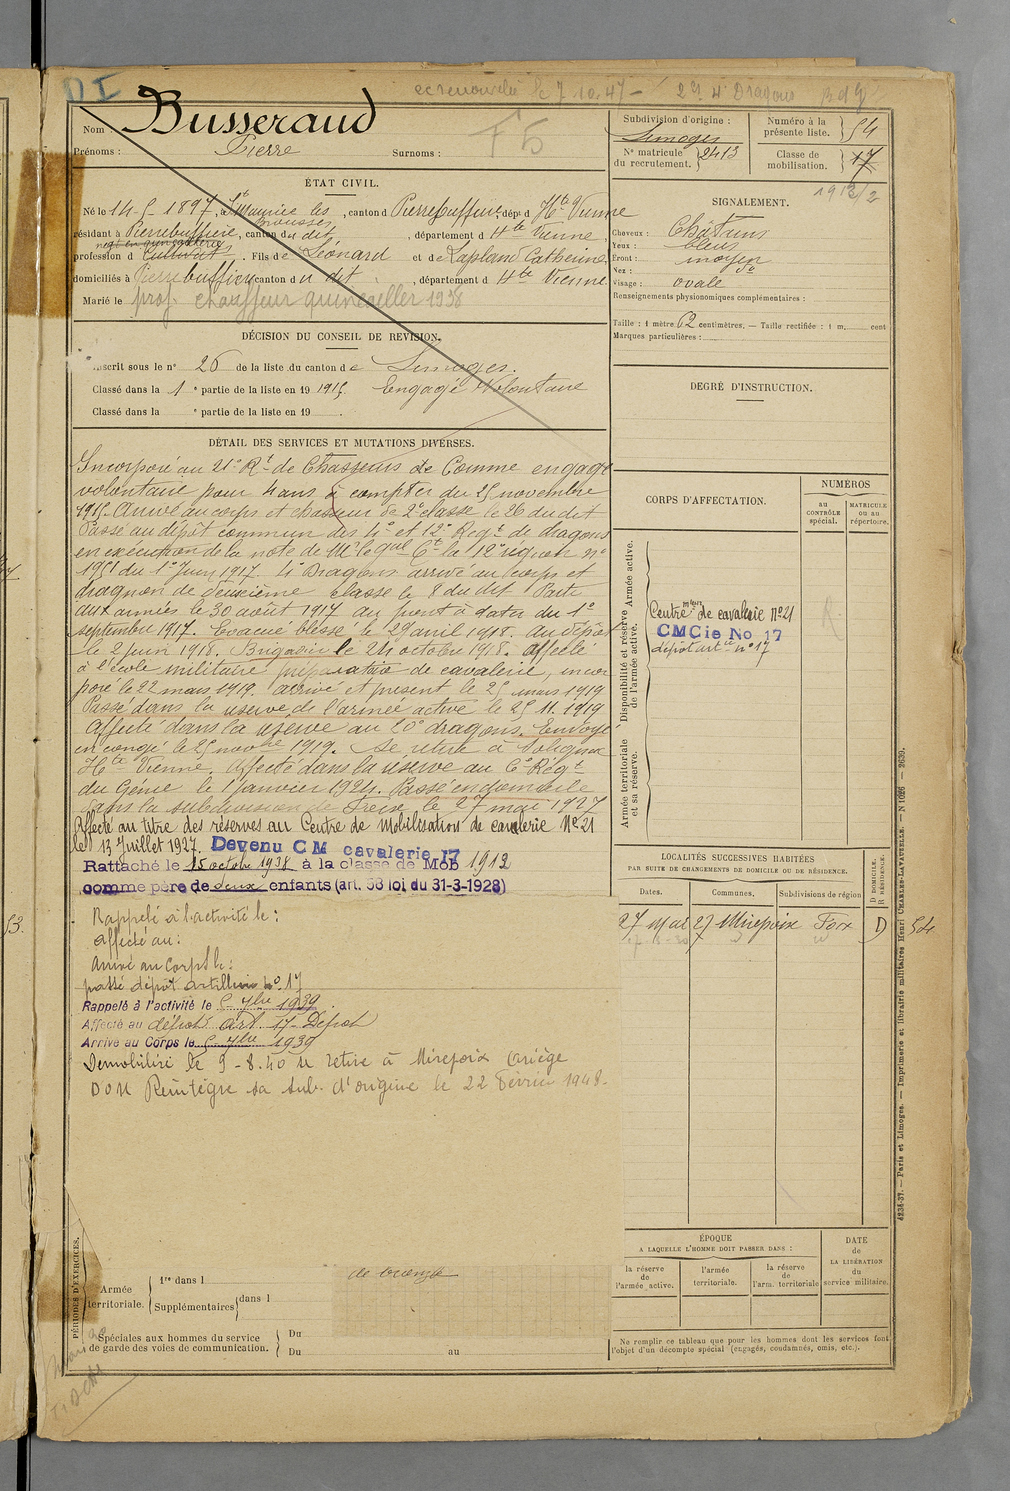 D I
Nom Busseraud
Prénoms : Pierre Surnoms :
F 5
Subdivision d'origine :
Limoges
N° matricule du recrutement. 2413
Numéro à la présente liste. 54
Classe de mobilisation. 17
1912/2
ÉTAT CIVIL.
Né le 14-5-1897, à St Maurice les Brousses, canton d Pierrebuffière, dépt d Hte Vienne
résidant à Pierrebuffière, canton du dit, département d Hte Vienne,
profession d Cultivat. Fils de Léonard et de Lapland Catherine
domiciliés à Pierrebuffière canton du dit, département d Hte Vienne
Marié le prof. chauffeur quincailler 1938
SIGNALEMENT.
Cheveux : Châtains
Yeux : bleus
Front : moyen
Nez : do
Visage : ovale
Renseignements physionomiques complémentaires :
Taille : 1 mètre 62 centimètres. — Taille rectifiée : 1 m. cent
Marques particulières :
DÉCISION DU CONSEIL DE REVISION.
Inscrit sous le n° 26 de la liste du canton de Limoges.
Classé dans la 1e partie de la liste en 19 1915. Engagé Volontaire
Classé dans la e partie de la liste en 19
DEGRÉ D'INSTRUCTION.
DÉTAIL DES SERVICES ET MUTATIONS DIVERSES.
Incorporé au 21e Rt de Chasseurs de Comme engagé
volontaire pour 4 ans à compter du 25 novembre
1915. Arrivé au corps et chasseur de 2e classe le 26 du dit
Passé au dépôt commun des 4e et 12e Regt de dragons
en exécution de la note de Mr le gal Ct la 12e région no
1951 du 1er Juin 1917. 4e Dragons arrivé au corps et
dragon de deuxième classe le 8 du dit Parti
aux armées le 30 août 1917 au front à dater du 1er
septembre 1917. Evacué blessé le 29 avril 1918. au dépôt
le 2 juin 1918. Brigadier le 24 octobre 1918. affecté
à l'école militaire préparatoire de cavalerie, incor
poré le 22 mars 1919. arrivé et présent le 25 mars 1919
Passé dans la réserve de l'armée active le 25.11.1919
Affecté dans la réserve au 20e dragons. Envoyé
en congé le 25 novbre 1919. Se retire à Solignac
Hte Vienne. Affecté dans la réserve au 6e Régt
du Génie le 1 janvier 1924. Passé en domicile
dans la subdivision de Foix le 27 mai 1927
Affecté au titre des réserves au Centre de Mobilisation de cavalerie No 21
le 13 Juillet 1927. Devenu CM cavalerie 17
Rattaché le 15 octobre 1938 à la classe de Mob 1912
comme père de deux enfants (art. 58 loi du 31-3-1928)
Rappelé à l'activité le :
affecté au :
Arrivé au Corps le :
passé dépôt artillerie no 17
Rappelé à l'activité le 5 7bre 1939
Affecté au dépôt art. 17 Dépôt
Arrivé au Corps le 5 7bre 1939
Démobilisé le 9-8-40 se retire à Mirepoix Ariège
DOM Réintègre sa sub. d'origine le 22 Février 1948-
CORPS D'AFFECTATION.
NUMÉROS
AU CONTRÔLE spécial.
MATRICULE ou au répertoire.
Disponibilité et réserve de l'armée active. Armée active.
Centre mob. de cavalerie No 21
CMCie No 17
dépôt artie no 17
Armée territoriale et sa réserve.
LOCALITÉS SUCCESSIVES HABITÉES
PAR SUITE DE CHANGEMENTS DE DOMICILE OU DE RÉSIDENCE.
D DOMICILE. R RÉSIDENCE.
Dates. Communes. Subdivisions de région
27 Mai 27 Mirepoix Foix D 54
ÉPOQUE
A LAQUELLE L'HOMME DOIT PASSER DANS :
la réserve de l'armée active.
l'armée territoriale.
la réserve de l'arm. territoriale
DATE de LA LIBÉRATION du service militaire.
Ne remplir ce tableau que pour les hommes dont les services font
l'objet d'un décompte spécial (engagés, condamnés, omis, etc.).
PÉRIODES D'EXERCICES.
Armée territoriale.
1re dans l
Supplémentaires dans l
de bronze
Spéciales aux hommes du service
de garde des voies de communication.
Du
Du au
4236-37. — Paris et Limoges. — Imprimerie et librairie militaires Henri CHARLES-LAVAUZELLE. — N 1026 — 2630.